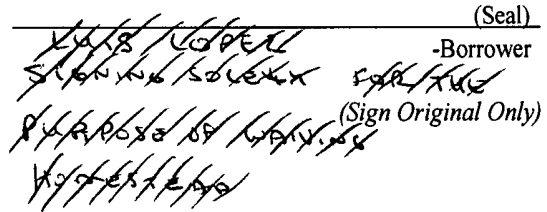 (Seal)
LUIS LOPEZ -Borrower
SIGNING SOLELY FOR THE
(Sign Original Only)
PURPOSE OF WAIVING
HOMESTEAD